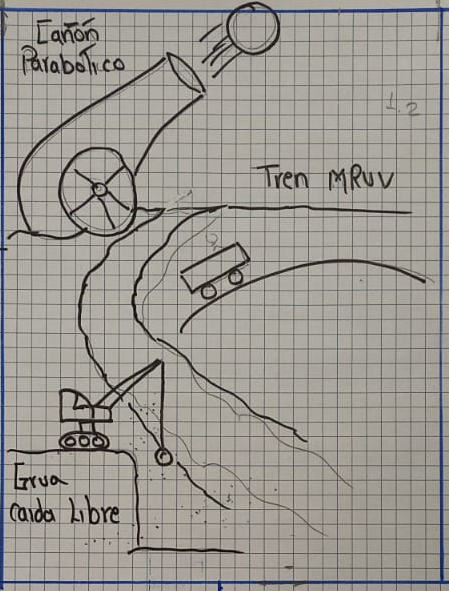 Cañón
Parabolico
1.2
Tren MRUV
Grua
caida Libre